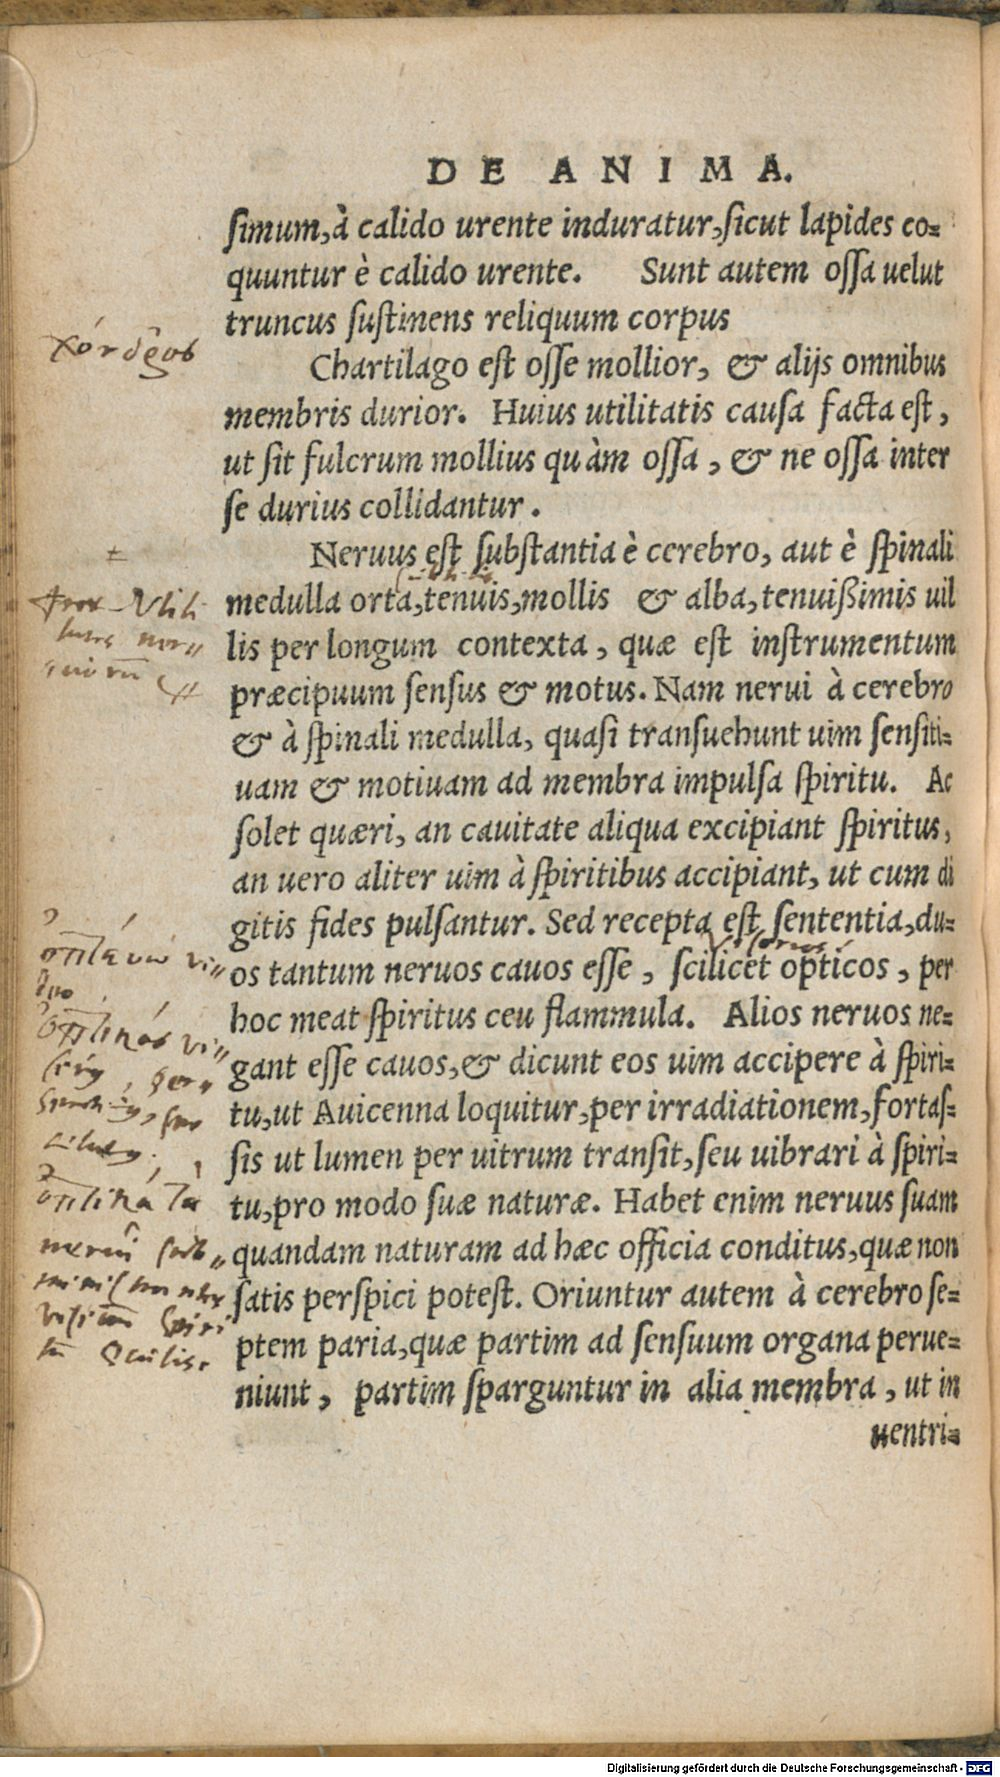 DE ANIMA.
simum, à calido urente induratur, sicut lapides co-
quuntur è calido urente. Sunt autem ossa uelut
truncus sustinens reliquum corpus
Chartilago est osse mollior, & alijs omnibus
membris durior. Huius utilitatis causa facta est,
ut sit fulcrum mollius quàm ossa, & ne ossa inter
se durius collidantur.
Neruus est substantia è cerebro, aut è spinali
medulla orta, tenuis, mollis & alba, tenuißimis uil
lis per longum contexta, quæ est instrumentum
præcipuum sensus & motus. Nam nerui à cerebro
& à spinali medulla, quasi transuehunt uim sensiti-
uam & motiuam ad membra impulsa spiritu. Ac
solet quæri, an cauitate aliqua excipiant spiritus,
an uero aliter uim à spiritibus accipiant, ut cum di
gitis fides pulsantur. Sed recepta est sententia, du-
os tantum neruos cauos esse, scilicet opticos, per
hoc meat spiritus ceu flammula. Alios neruos ne-
gant esse cauos, & dicunt eos uim accipere à spiri-
tu, ut Auicenna loquitur, per irradiationem, fortas-
sis ut lumen per uitrum transit, seu uibrari à spiri-
tu, pro modo suæ naturæ. Habet enim neruus suam
quandam naturam ad hæc officia conditus, quæ non
satis perspici potest. Oriuntur autem à cerebro se-
ptem paria, quæ partim ad sensuum organa perue-
niunt, partim sparguntur in alia membra, ut in
uentri-
χόνδρος
visorios
ὀπτικὰ τὰ
Digitalisierung gefördert durch die Deutsche Forschungsgemeinschaft - DFG